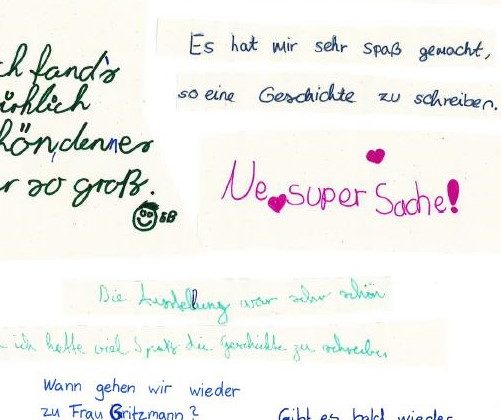 ch fand's
irklich
hön, denn es
r so groß.
5B
Es hat mir sehr spaß gemacht,
so eine Geschichte zu schreiben.
Ne super Sache!
Die Ausstellung war sehr schön
ich hatte viel Spaß die Geschichte zu schreiben
Wann gehen wir wieder
zu Frau Gritzmann?
Gibt es bald wieder